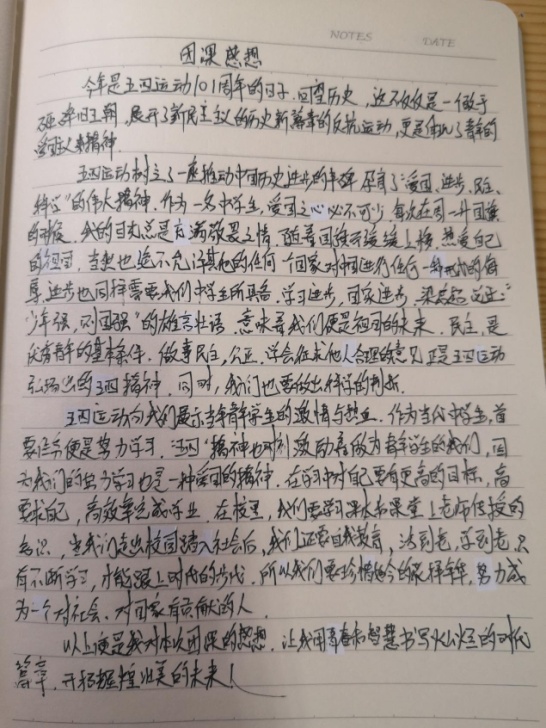 NOTES DATE
团课感想
今年是五四运动101周年的日子.回望历史,这不仅仅是一做于
王朝,展开了新民主主义的历史新篇章的反抗运动,更是体现了青年的
爱国主义精神.
五四运动树立了一座推动中国历史进步的丰碑.孕育了"爱国、进步、民主、
科学"的伟大精神.作为一名中学生,爱国之心必不可少.每次在周一升国旗
的时候,我的目光总是充满敬畏之情,随着国旗缓缓上移.热爱自己
的祖国,当然也绝不允许其他的任何一个国家对中国进行任何一种形式的侮
辱.进步也同样需要我们中学生所具备.学习进步,国家进步,梁启超
少年强,则国强"的雄言壮语,意味着我们便是祖国的未来.民主,是
优秀青年的基本条件.做事民主,公正,学会征求他人合理的意见正是五四运动
弘扬出的五四精神.同时,我们也要做出科学的判断.
五四运动向我们展示当年青年学生的激情与热血.作为当代中学生,首
要任务便是努力学习.五四"精神也时刻激励着做为青年学生的我们,因
为我们的努力学习也是一种爱国的精神.在学习中对自己要有更高的目标,高
要求自己,高效率完成学业.在校里,我们要学习课本和课堂上老师传授的
知识,当我们走出校园踏入社会后,我们还要自我教育,活到老,学到老.只
有不断学习,才能跟上时代的步伐.所以我们要珍惜如今的美好年华,努力成
为一个对社会、对国家有贡献的人.
以上便是我对本次团课的感想.让我用青春和智慧书写火红的时代
篇章,开拓辉煌壮美的未来!